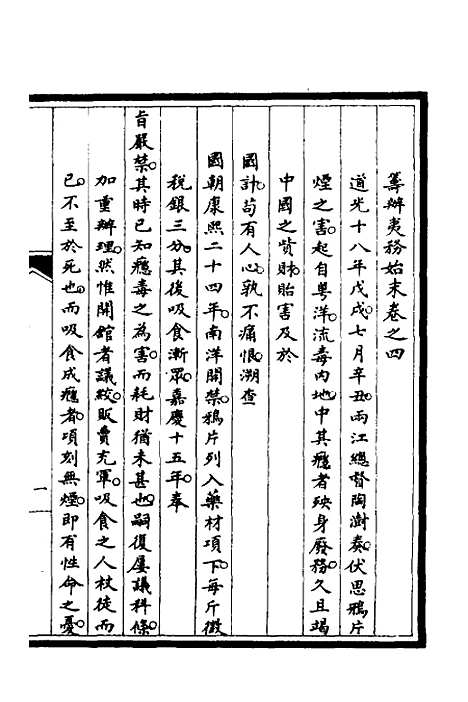 籌辦夷務始末卷之四
道光十八年戊戌七月辛丑。兩江總督陶澍奏。伏思鴉片
煙之害。起自粵洋。流毒內地。中其癮者。殃身廢務。久且竭
中國之貲財。貽害及於
國計。苟有人心。孰不痛恨。溯查
國朝康熙二十四年。南洋開禁。鴉片列入藥材項下。每斤徵
稅銀三分。其後吸食漸眾。嘉慶十五年。奉
旨嚴禁。其時已知癮毒之為害。而耗財猶未甚也。嗣復屢議科條。
加重辦理。然惟開館者議絞。販賣充軍。吸食之人杖徒而
已。不至於死也。而吸食成癮者。頃刻無煙。即有性命之憂。
一